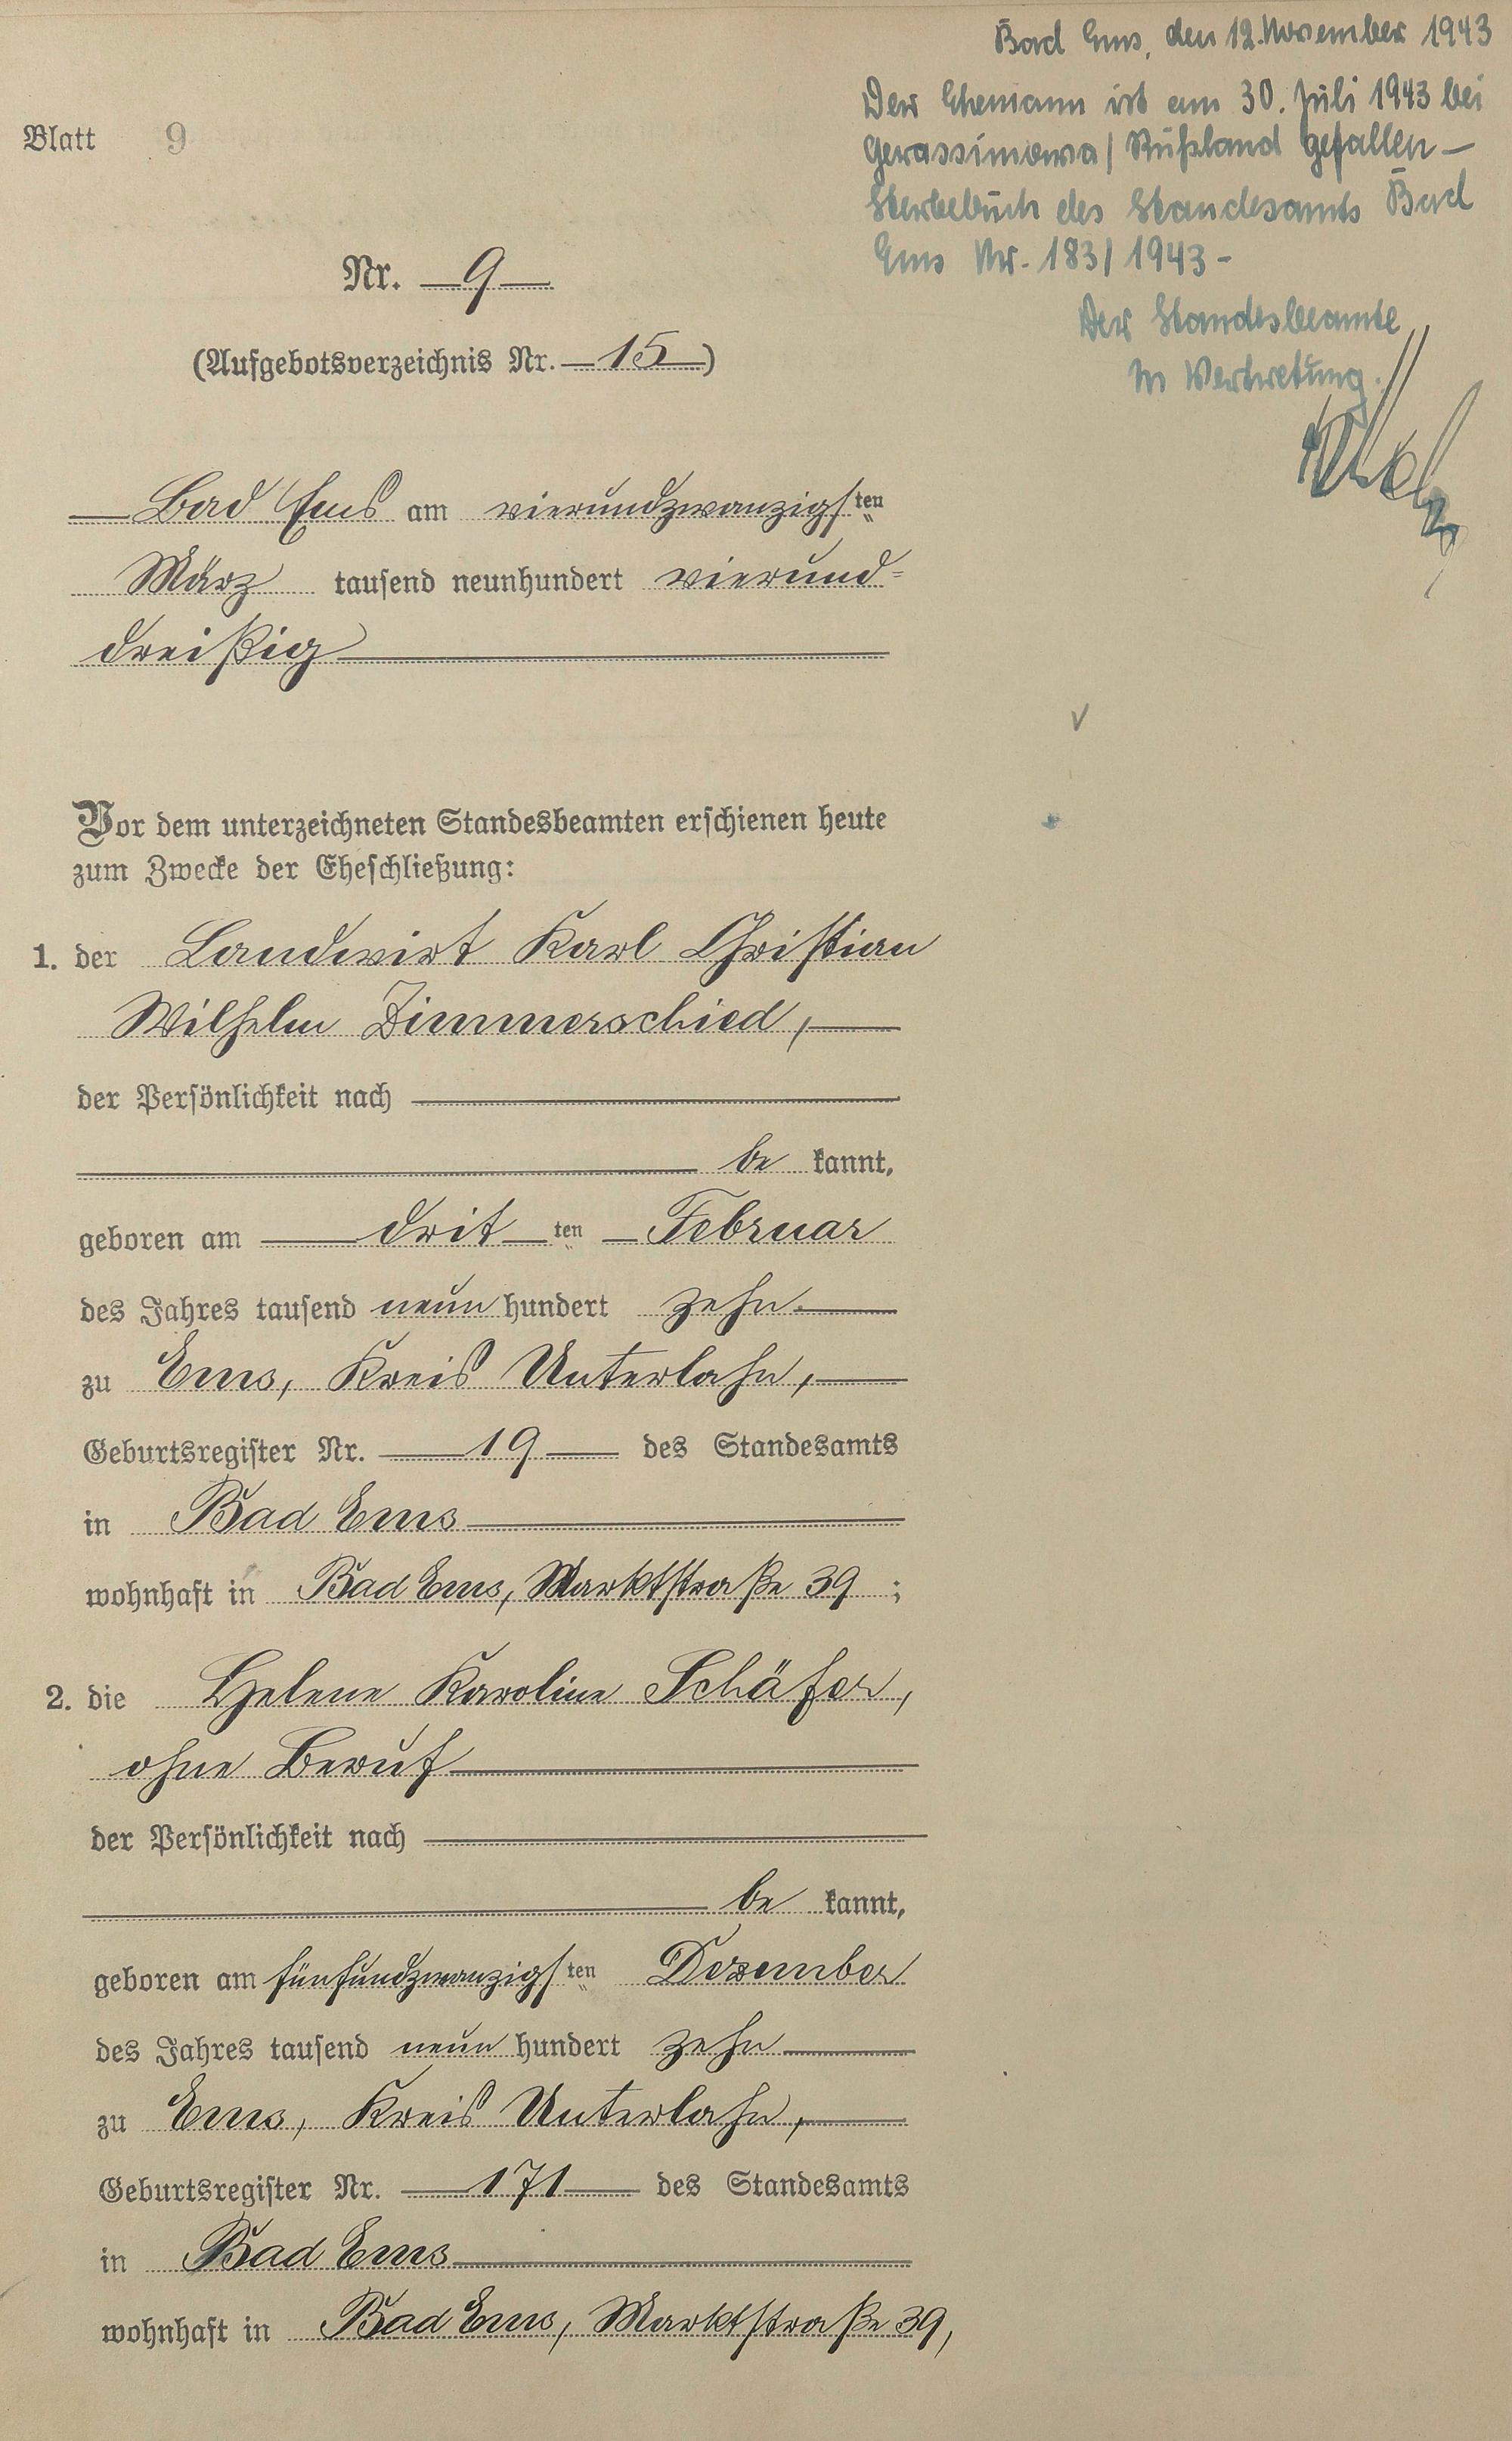 Bad Ems, den 12. November 1943
Der Ehemann ist am 30. Juli 1943 bei
Gerassimowa / Rußland gefallen —
Sterbebuch des Standesamts Bad
Ems Nr. 183/1943 -
Der Standesbeamte
In Vertretung.
Blatt 9
Nr. 9
(Aufgebotsverzeichnis Nr. 15)
Bad Ems am vierundzwanzigsten
März tausend neunhundert vierund=
dreißig
Vor dem unterzeichneten Standesbeamten erschienen heute
zum Zwecke der Eheschließung:
1. der Landwirt Karl Christian
Wilhelm Zimmerschied,
der Persönlichkeit nach
be kannt,
geboren am drit ten Februar
des Jahres tausend neun hundert zehn
zu Ems, Kreis Unterlahn,
Geburtsregister Nr. 19 des Standesamts
in Bad Ems
wohnhaft in Bad Ems, Marktstraße 39 ;
2. die Helene Karoline Schäfer,
ohne Beruf
der Persönlichkeit nach
be kannt,
geboren am fünfundzwanzigsten Dezember
des Jahres tausend neun hundert zehn
zu Ems, Kreis Unterlahn,
Geburtsregister Nr. 171 des Standesamts
in Bad Ems
wohnhaft in Bad Ems, Marktstraße 39,